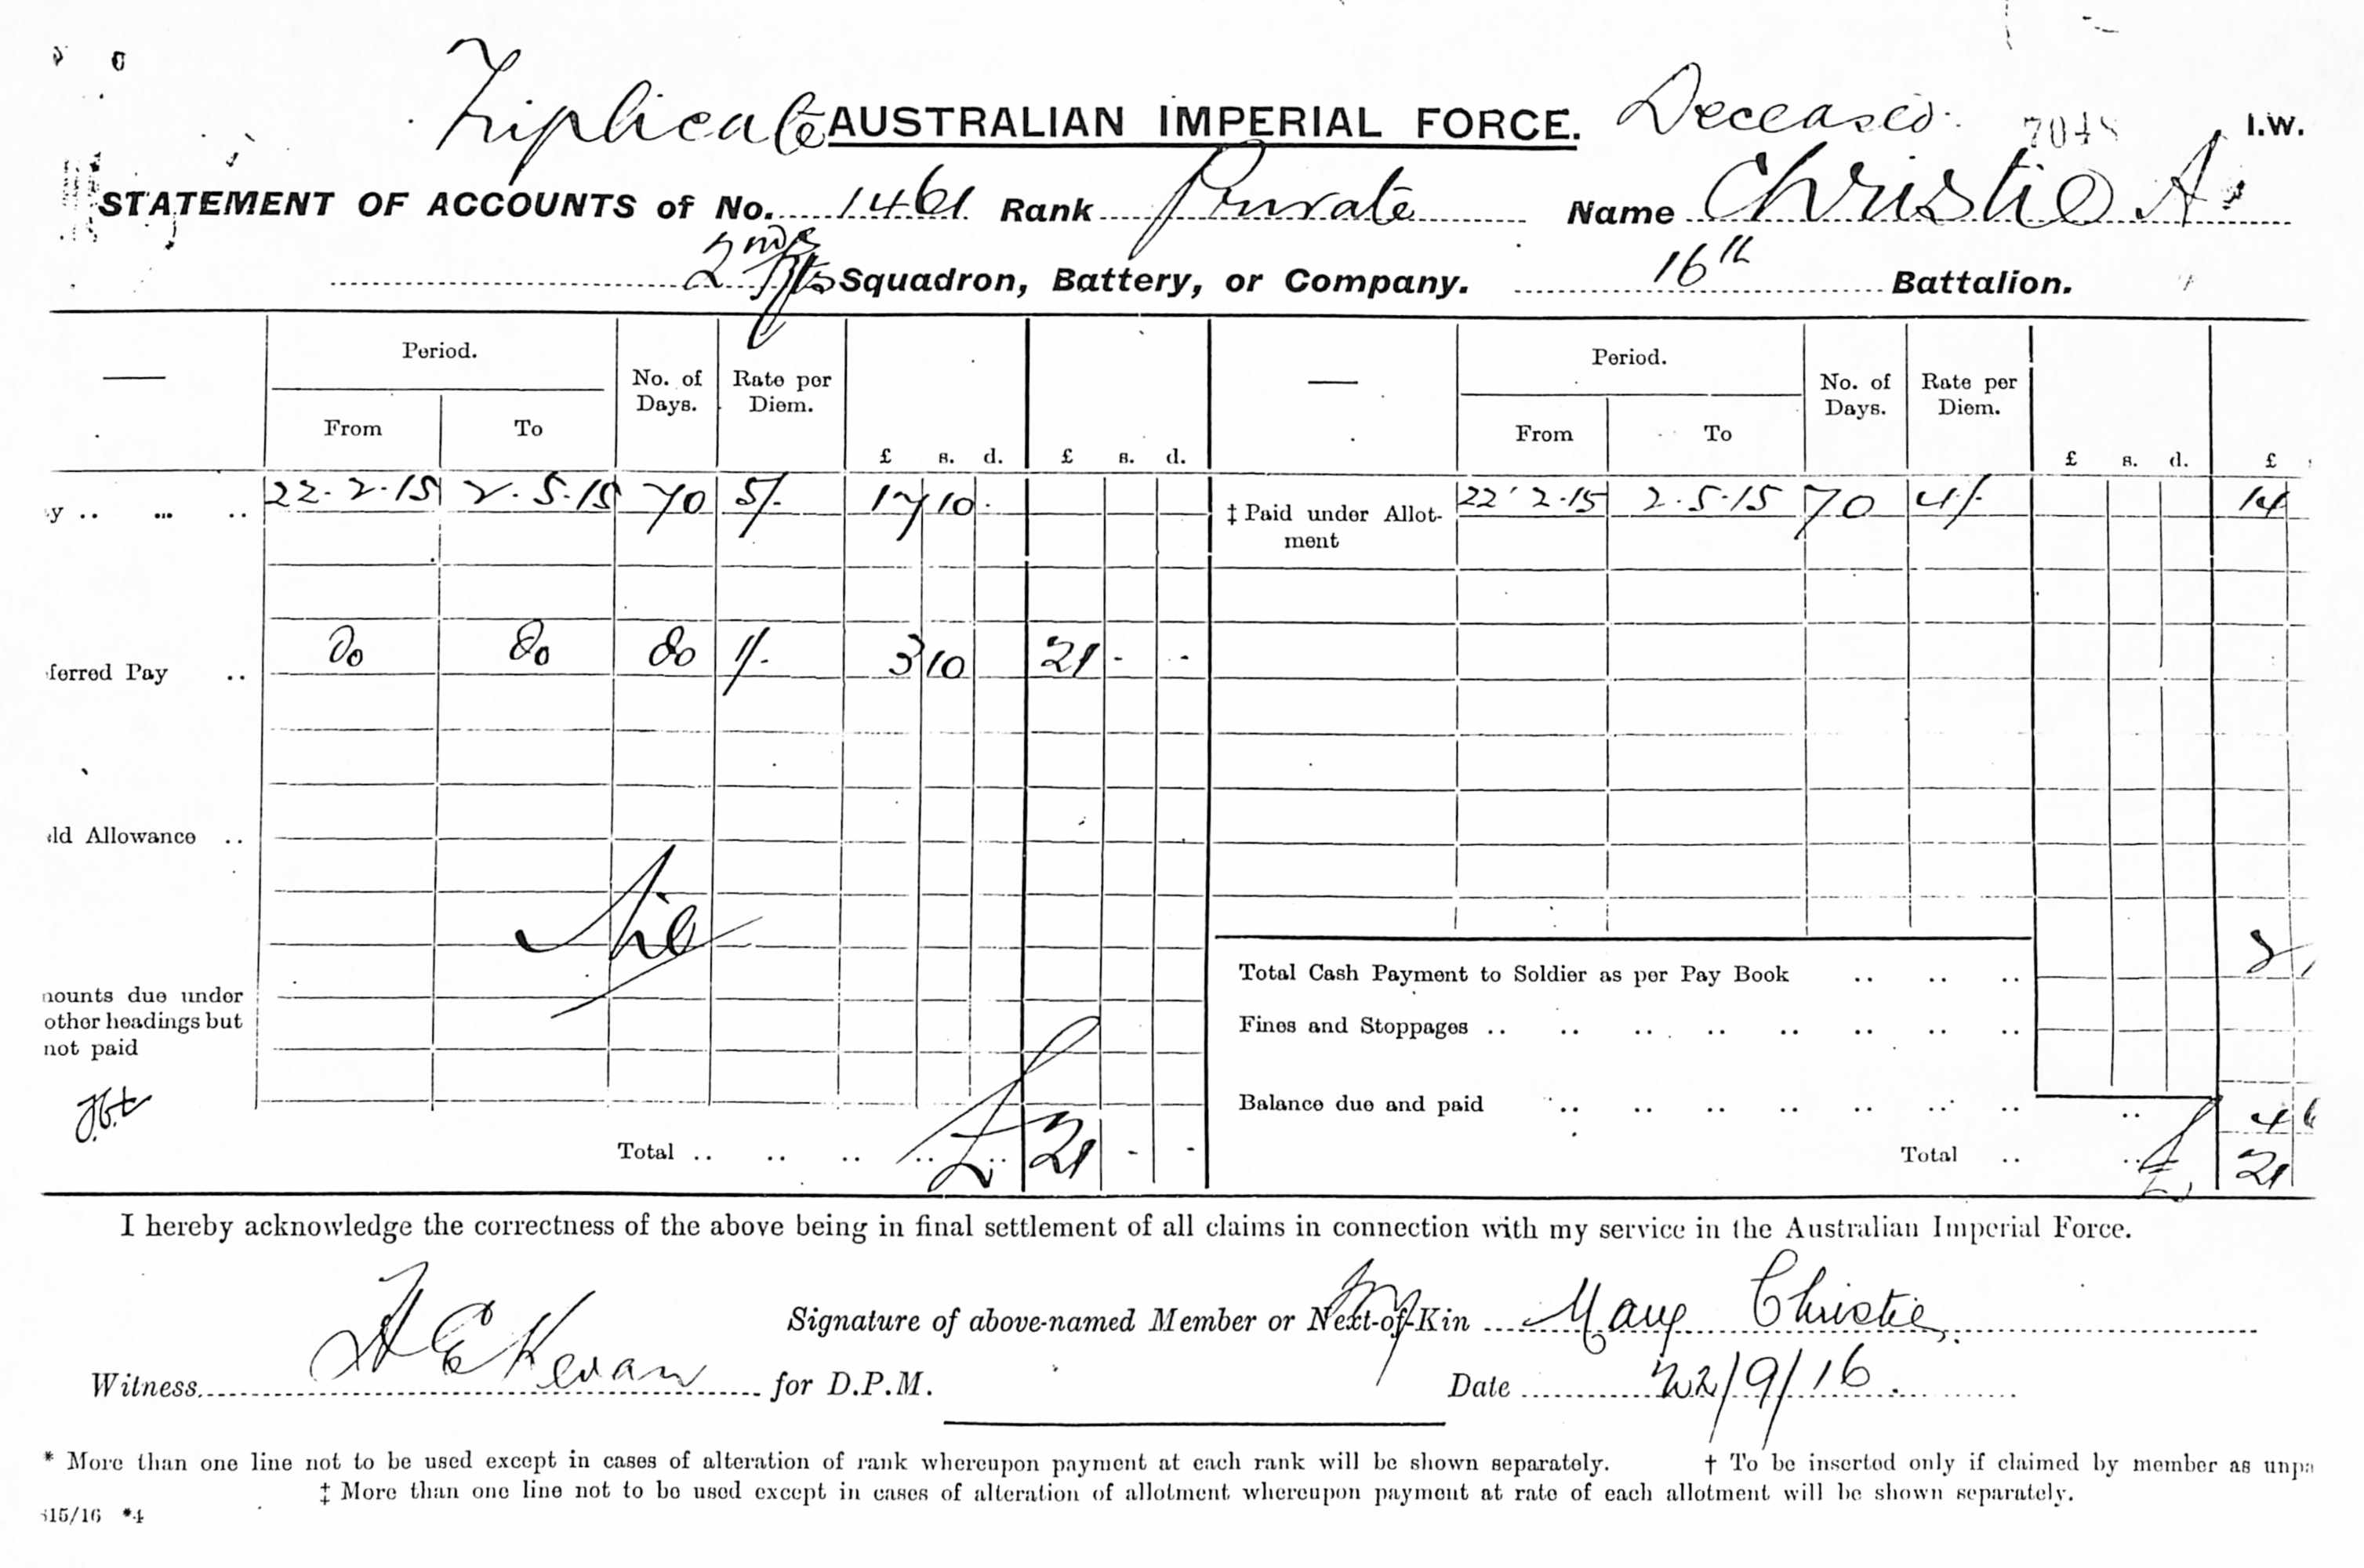 Triplicate AUSTRALIAN IMPERIAL FORCE. Deceased. 7048 I.W.
STATEMENT OF ACCOUNTS of No. 1461 Rank Private Name Christie A.
2nd Squadron, Battery, or Company. 16th Battalion.
Period. No. of Days. Rate per Diem. Period. No. of Days. Rate per Diem.
From To £ s. d. £ s. d. From To £ s. d. £
y .. ... .. 22.2.15 2.5.15 70 5/- 17 10 - ‡ Paid under Allotment 22.2.15 2.5.15 70 4/- 14
ferred Pay .. Do Do Do 1/- 3 10 21 - -
ld Allowance ..
Nil
Total Cash Payment to Soldier as per Pay Book .. .. ..
nounts due under
other headings but
not paid
Fines and Stoppages .. .. .. .. .. .. .. ..
Balance due and paid .. .. .. .. .. .. .. .. 4
Total .. .. .. .. .. £ 21 - - Total .. .. £ 21
I hereby acknowledge the correctness of the above being in final settlement of all claims in connection with my service in the Australian Imperial Force.
Signature of above-named Member or Next-of-Kin Mary Christie,
Witness. for D.P.M. Date 22/9/16.
* More than one line not to be used except in cases of alteration of rank whereupon payment at each rank will be shown separately. † To be inserted only if claimed by member as unpa
‡ More than one line not to be used except in cases of alteration of allotment whereupon payment at rate of each allotment will be shown separately.
515/16 *4